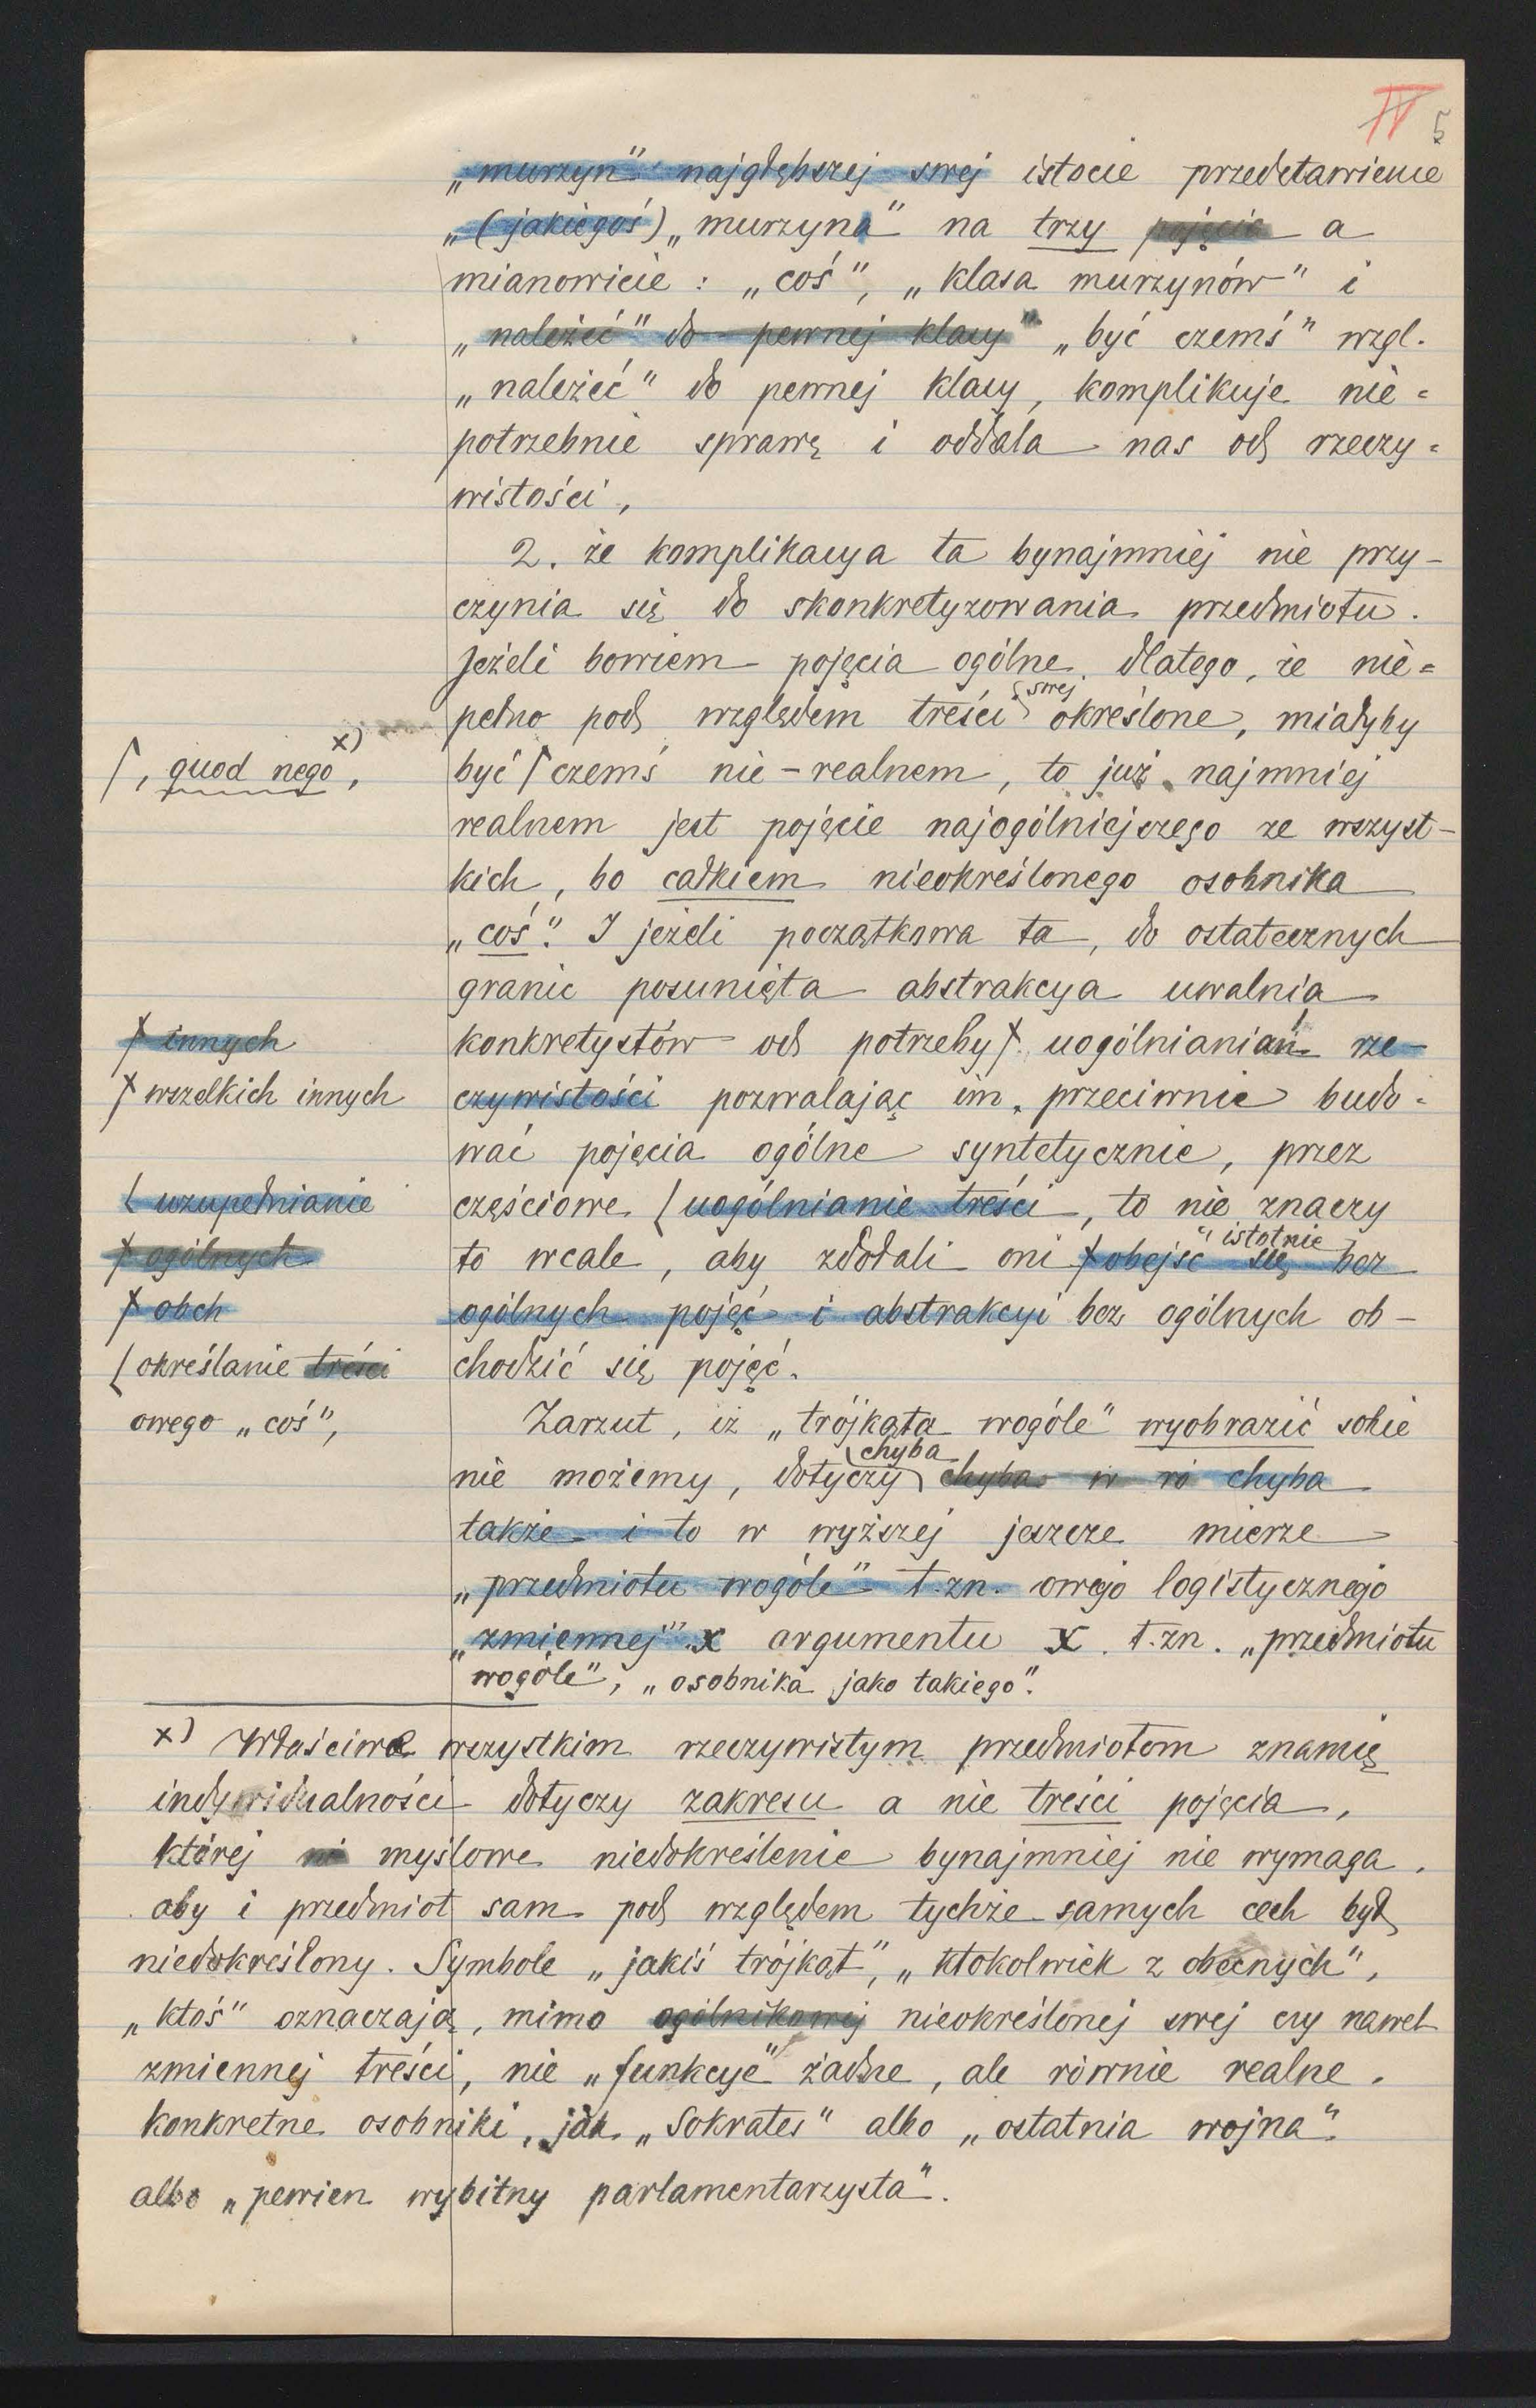 IV 5
„murzyn” najgłębszej swej istocie przedstawienie
„(jakiegoś) „murzyna” na trzy pojęcia a
mianowicie : „coś”, „klasa murzynów” i
„należeć” do pewnej klasy” „być czemś” wzgl.
„należeć” do pewnej klasy, komplikuje nie=
potrzebnie sprawę i oddala nas od rzeczy=
wistości,
2. że komplikacya ta bynajmniej nie przy-
czynia się do skonkretyzowania przedmiotu.
Jeżeli bowiem pojęcia ogólne, dlatego, że nie=
swej
pełno pod względem treści określone, miałyby
x)
⌈, quod nego,
być ⌈ czemś nie-realnem, to już najmniej
realnem jest pojęcie najogólniejszego ze wszyst-
kich, bo całkiem nieokreślonego osobnika
„coś”. I jeżeli początkowa ta, do ostatecznych
granic posunięta abstrakcya uwalnia
innych
konkretystów od potrzeby uogólnianiań rze-
wszelkich innych
czywistości pozwalając im, przeciwnie budo-
wać pojęcia ogólne syntetycznie, przez
uzupełnianie
częściowe uogólnianie treści, to nie znaczy
istotnie
ogólnych
to wcale, aby zdołali oni obejść się bez
obch
ogólnych pojęć i abstrakcyi bez ogólnych ob-
określanie treści
chodzić się pojęć.
owego „coś”,
Zarzut, iż „trójkąta wogóle” wyobrazić sobie
chyba
nie możemy, dotyczy chyba w ró chyba
także i to w wyższej jeszcze mierze
„przedmiotu wogóle” t.zn. owego logistycznego
„zmiennej” x argumentu x. t.zn. „przedmiotu
wogóle”, „osobnika jako takiego”.
x) Właściwe wszystkim rzeczywistym przedmiotom znamię
indywidualności dotyczy zakresu a nie treści pojęcia,
której ni myślowe niedokreślenie bynajmniej nie wymaga,
aby i przedmiot sam pod względem tychże samych cech był
niedokreślony. Symbole „jakiś trójkąt”, „ktokolwiek z obecnych”,
„ktoś” oznaczają, mimo ogólnikowej nieokreślonej swej czy nawet
zmiennej treści, nie „funkcye” żadne, ale równie realne,
konkretne osobniki, jak „Sokrates” albo „ostatnia wojna”.
albo „pewien wybitny parlamentarzysta”.